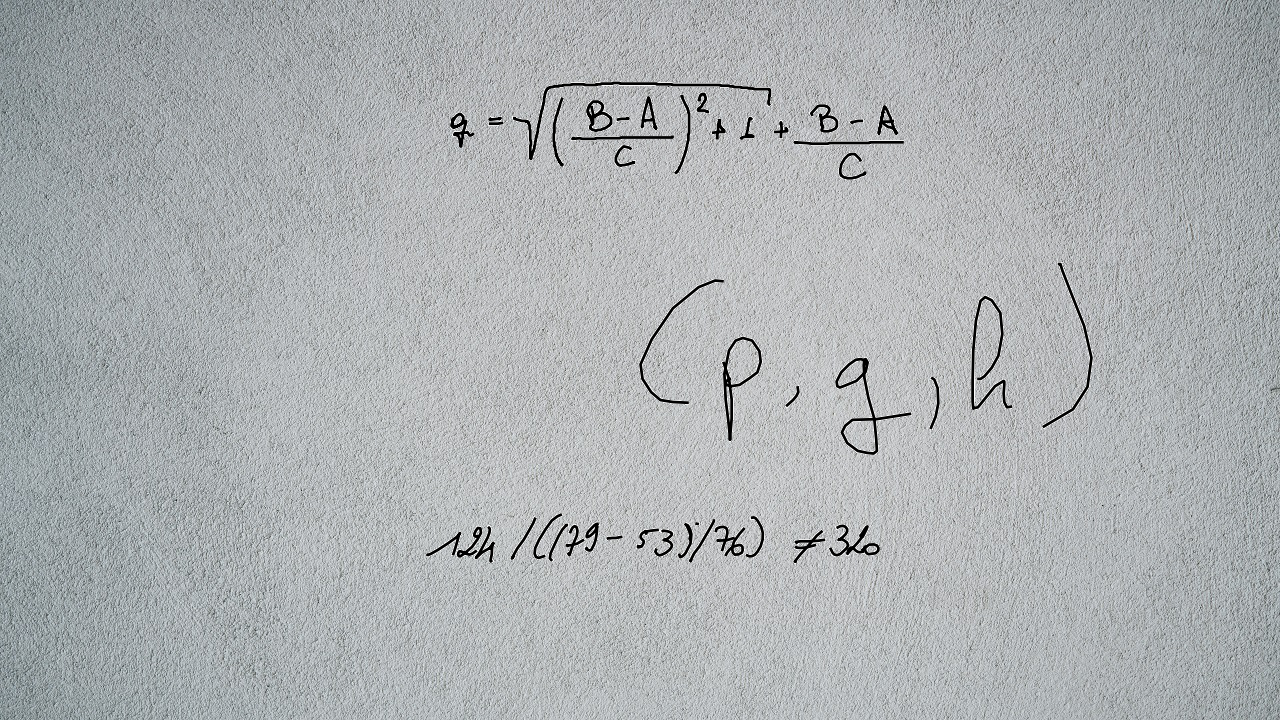 q = √((B-A)/C)² + 1 + (B-A)/C
(p, g, h)
124/((79-53)/76) ≠ 320